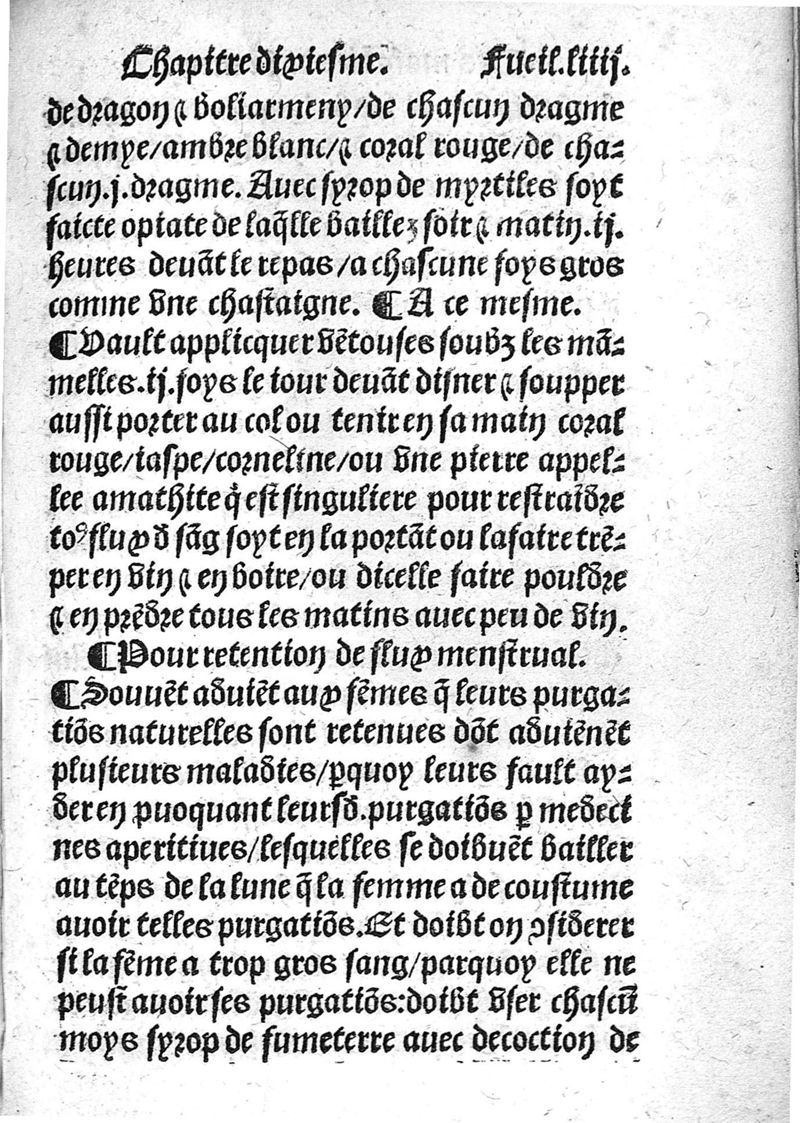 Chapitre dixiesme. Fueil.liiij.
de dragon ⁊ boliarmeny/de chascun dragme
⁊ demye/ambre blanc/⁊ coral rouge/de cha-
scun.j.dragme. Avec syrop de myrtiles soyt
faicte opiate de laq̃lle baillez soir ⁊ matin.ij.
heures devãt le repas/a chascune foys gros
comme vne chastaigne. ¶ A ce mesme.
¶ Vault applicquer vẽtouses soubz les mã-
melles.ij.foys le iour devãt disner ⁊ soupper
aussi porter au col ou tenir en sa main coral
rouge/iaspe/corneline/ou vne pierre appel-
lee amathite q̃ est singuliere pour restraĩdre
toꝰ flux d̃ sãg soyt en la portãt ou la faire trẽ-
per en vin ⁊ en boire/ou dicelle faire pouldre
⁊ en prẽdre tous les matins avec peu de vin.
¶ Pour retention de flux menstrual.
¶ Souuẽt aduiẽt aux fẽmes q̃ leurs purga-
tiõs naturelles sont retenues dõt aduiẽnẽt
plusieurs maladies/ꝑquoy leurs fault ay-
der en ꝓuoquant leursd.purgatiõs ꝑ medeci
nes aperitiues/lesquelles se doibuẽt bailler
au tẽps de la lune q̃ la femme a de coustume
auoir telles purgatiõs. Et doibt on ↄsiderer
si la fẽme a trop gros sang/parquoy elle ne
peust auoir ses purgatiõs:doibt vser chascũ
moys syrop de fumeterre auec decoction de